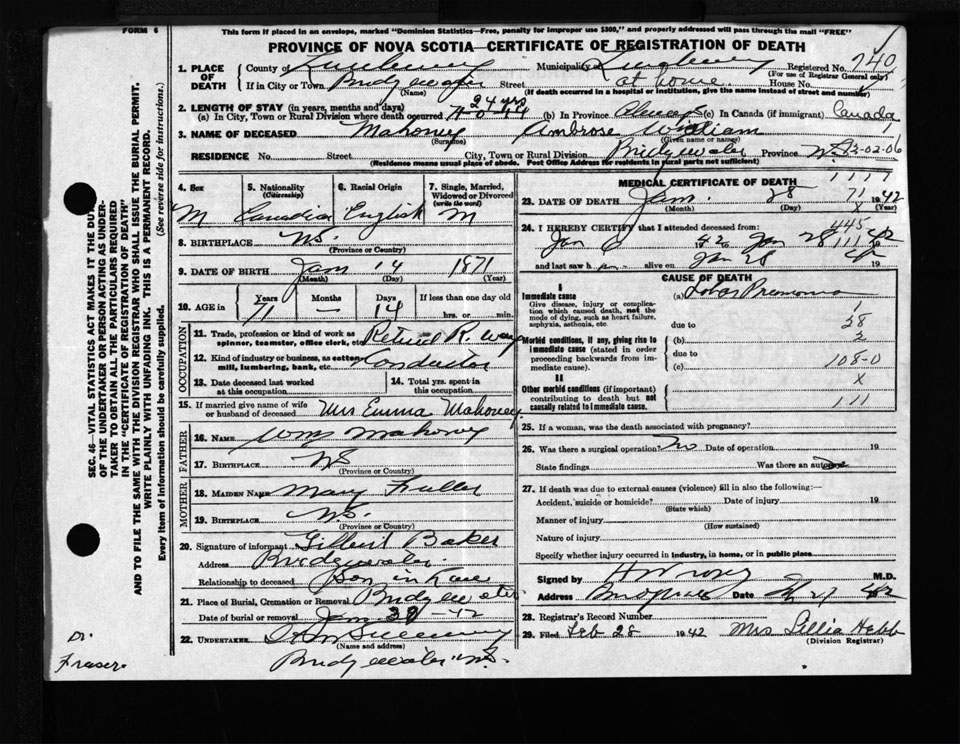 This form if placed in an envelope, marked "Dominion Statistics—Free, penalty for improper use $300," and properly addressed will pass through the mail "FREE"
FORM 6
PROVINCE OF NOVA SCOTIA—CERTIFICATE OF REGISTRATION OF DEATH
1. PLACE OF DEATH
County of Municipality of Registered No. 740
(For use of Registrar General only)
If in City or Town Bridgewater Street at home House No.
(Name) (If death occurred in a hospital or institution, give the name instead of street and number)
2. LENGTH OF STAY (in years, months and days)
(a) In City, Town or Rural Division where death occurred 24 yrs (b) In Province Always (c) In Canada (if immigrant) Canada
3. NAME OF DECEASED Mahoney Ambrose William
(Surname) (Given name or names)
RESIDENCE No. Street City, Town or Rural Division Bridgewater Province N.S. 3-02-06
(Residence means usual place of abode. Post Office Address for residents in rural parts not sufficient)
4. Sex
M
5. Nationality
(Citizenship)
Canadian
6. Racial Origin
English
7. Single, Married, Widowed or Divorced
(write the word)
M
8. BIRTHPLACE N.S.
(Province or Country)
9. DATE OF BIRTH Jan 14 1871
(Month) (Day) (Year)
10. AGE in Years Months Days If less than one day old
71 — 14 hrs. or min.
OCCUPATION
11. Trade, profession or kind of work as spinner, teamster, office clerk, etc. Retired R. way
12. Kind of industry or business, as cotton-mill, lumbering, bank, etc. Conductor
13. Date deceased last worked at this occupation
14. Total yrs. spent in this occupation
15. If married give name of wife or husband of deceased Mrs Emma Mahoney
FATHER
16. NAME Wm Mahoney
17. BIRTHPLACE NS
(Province or Country)
MOTHER
18. MAIDEN NAME Mary Fuller
19. BIRTHPLACE N.S.
(Province or Country)
20. Signature of informant Gilbert Baker
Address Bridgewater
Relationship to deceased Son in Law
21. Place of Burial, Cremation or Removal Bridgewater
Date of burial or removal Jan 30 - 42
22. UNDERTAKER
(Name and address)
Bridgewater N.S.
MEDICAL CERTIFICATE OF DEATH
1117
23. DATE OF DEATH Jan. 28 1942
(Month) (Day) (Year)
71
X
24. I HEREBY CERTIFY that I attended deceased from: 445
Jan 42 to Jan 28 1942
111
and last saw h alive on Jan 28 19 42
CAUSE OF DEATH
I
Immediate cause (a) Lobar Pneumonia
Give disease, injury or complication which caused death, not the mode of dying, such as heart failure, asphyxia, asthenia, etc.
due to
Morbid conditions, if any, giving rise to immediate cause (stated in order proceeding backwards from immediate cause).
(b)
due to
(c)
1
28
2
108-0
II
Other morbid conditions (if important) contributing to death but not causally related to immediate cause.
X
111
25. If a woman, was the death associated with pregnancy?
26. Was there a surgical operation? no Date of operation 19
State findings Was there an autopsy?
27. If death was due to external causes (violence) fill in also the following:—
Accident, suicide or homicide? Date of injury 19
(State which)
Manner of injury
(How sustained)
Nature of injury
Specify whether injury occurred in industry, in home, or in public place
Signed by M.D.
Address Date 27 42
28. Registrar's Record Number
29. Filed Feb 28 1942 Mrs Lillia Hebb
(Division Registrar)
SEC. 46—VITAL STATISTICS ACT MAKES IT THE DUTY
OF THE UNDERTAKER OR PERSON ACTING AS UNDER-
TAKER TO OBTAIN ALL THE PARTICULARS REQUIRED
IN THE "CERTIFICATE OF REGISTRATION OF DEATH"
AND TO FILE THE SAME WITH THE DIVISION REGISTRAR WHO SHALL ISSUE THE BURIAL PERMIT.
WRITE PLAINLY WITH UNFADING INK. THIS IS A PERMANENT RECORD.
Every item of information should be carefully supplied. (See reverse side for instructions.)
Dr.
Fraser